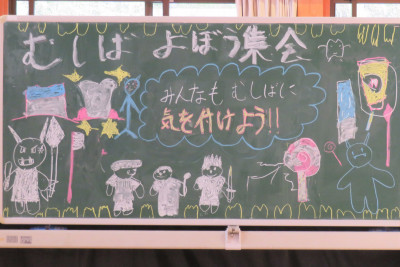 むしば よぼう集会
みんなも むしばに
気を付けよう!!